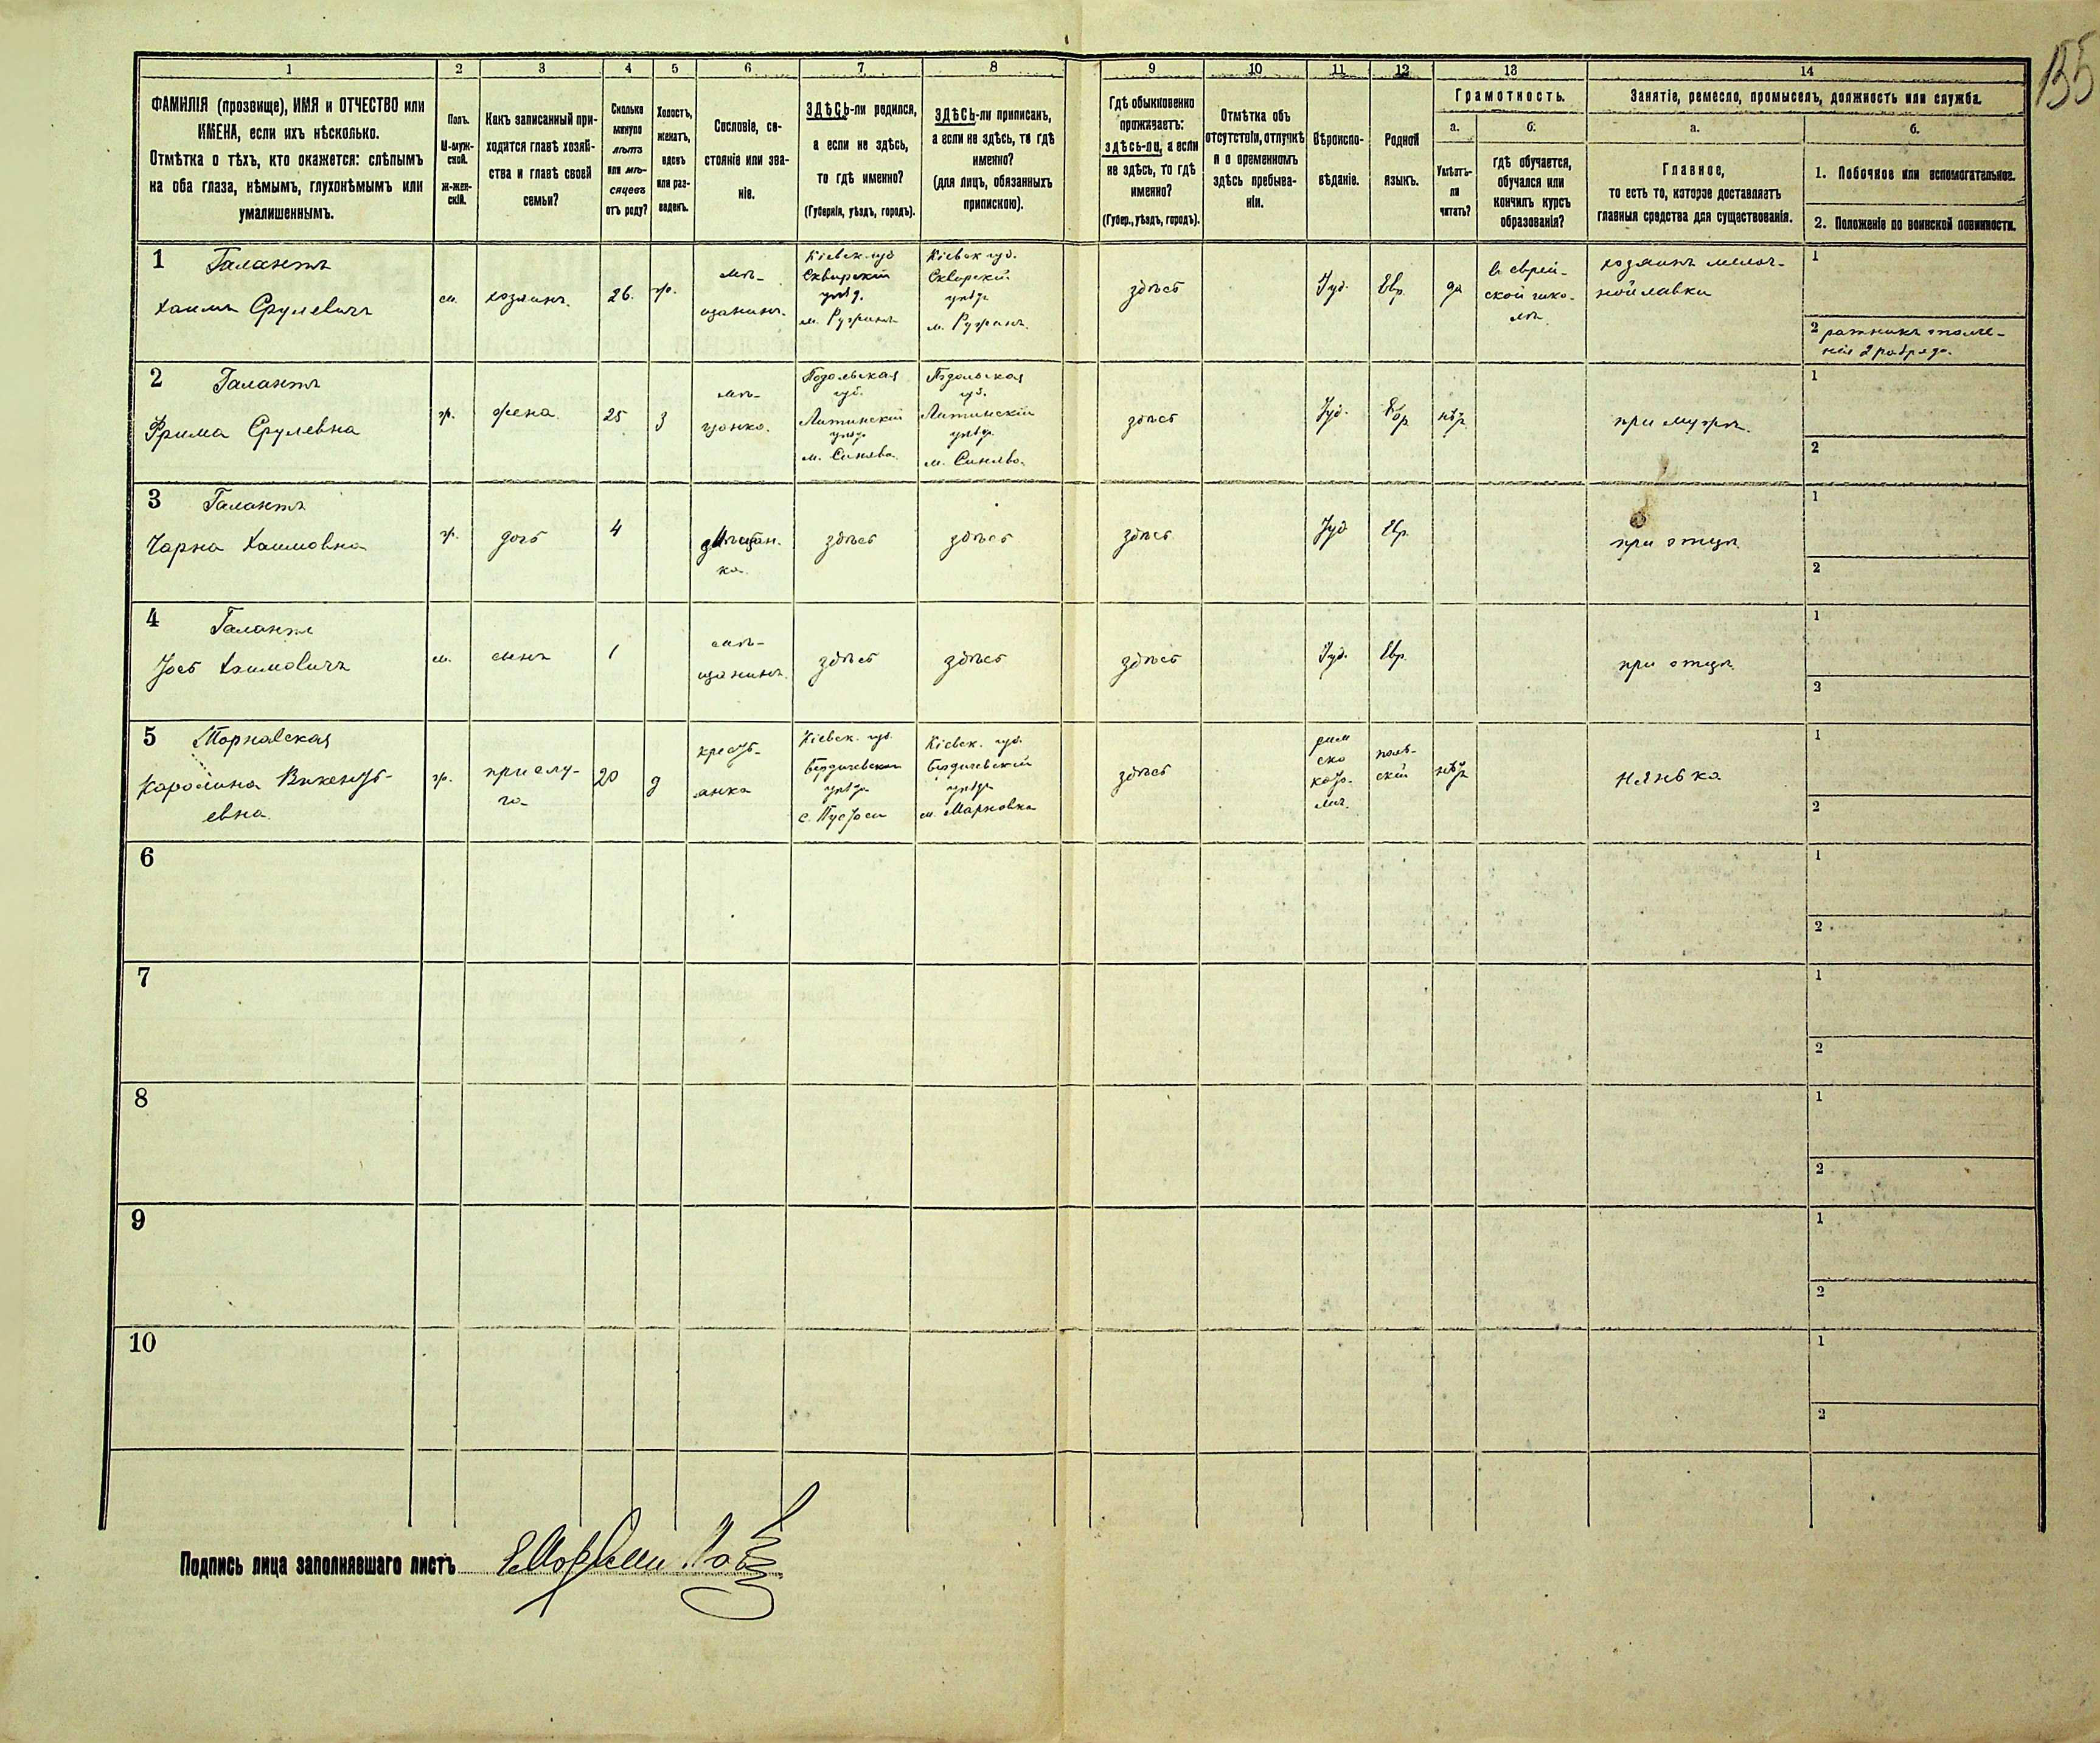 155
1 2 3 4 5 6 7 8 9 10 11 12 13 14
ФАМИЛІЯ (прозвище), ИМЯ и ОТЧЕСТВО или
ИМЕНА, если ихъ нѣсколько.
Отмѣтка о тѣхъ, кто окажется: слѣпымъ
на оба глаза, нѣмымъ, глухонѣмымъ или
умалишеннымъ.
Полъ.
М-муж-
ской.
Ж-жен-
скій.
Какъ записанный при-
ходится главѣ хозяй-
ства и главѣ своей
семьи?
Сколько
минуло
лѣтъ
или мѣ-
сяцевъ
отъ роду?
Холостъ,
женатъ,
вдовъ
или раз-
веденъ.
Сословіе, со-
стояніе или зва-
ніе.
ЗДѢСЬ-ли родился,
а если не здѣсь,
то гдѣ именно?
(Губернія, уѣздъ, городъ).
ЗДѢСЬ-ли приписанъ,
а если не здѣсь, то гдѣ
именно?
(для лицъ, обязанныхъ
припискою).
Гдѣ обыкновенно
проживаетъ:
здѣсь-ли, а если
не здѣсь, то гдѣ
именно?
(Губер., уѣздъ, городъ).
Отмѣтка объ
отсутствіи, отлучкѣ
и о временномъ
здѣсь пребыва-
ніи.
Вѣроиспо-
вѣданіе.
Родной
языкъ.
Грамотность.
а.
Умѣетъ-
ли
читать?
б.
Гдѣ обучается,
обучался или
кончилъ курсъ
образованія?
Занятіе, ремесло, промыселъ, должность или служба.
а.
Главное,
то есть то, которое доставляетъ
главныя средства для существованія.
б.
1. Побочное или вспомогательное.
2. Положеніе по воинской повинности.
1 Галантъ
Хаимъ Срулевичъ
м.
хозяинъ.
26.
ж.
мѣ-
щанинъ.
Кіевск. губ
Сквирскій
уѣзд.
м. Ружинъ
Кіевск губ.
Сквирскій
уѣзд.
м. Ружинъ.
здѣсь
Іуд.
Евр.
да
в еврей-
ской шко-
лѣ
хозяинъ мелоч-
ной лавки
1
2 ратникъ ополче-
нія 2 разряда.
2 Галантъ
Фрима Срулевна
ж.
жена.
25
з
мѣ-
щанка.
Подольская
губ.
Литинскій
уѣзд.
м. Синява.
Подольская
губ.
Литинскій
уѣзд.
м. Синява.
здѣсь
Іуд.
Евр
нѣт
при мужѣ.
1
2
3 Галантъ
Чарна Хаимовна
ж.
дочь
4
Мѣщан.
ка.
здѣсь
здѣсь
здѣсь
Іуд
Евр.
при отцѣ
1
2
4 Галантъ
Іось Хаимовичъ
м.
сынъ
1
мѣ-
щанинъ.
здѣсь
здѣсь
здѣсь
Іуд.
Евр.
при отцѣ
1
2
5 Торнавская
Каролина Викенть-
евна.
ж.
прислу-
га
20
д
кресть-
анка
Кіевск. губ.
Бердичевскій
уѣзда
с. Пустоси
Кіевск. губ.
Бердичевскій
уѣзда
м. Марковка
здѣсь
рим
ско
като-
лич.
поль-
скій
нѣт
нянька
1
2
6
1
2
7
1
2
8
1
2
9
1
2
10
1
2
Подпись лица заполнявшаго листъ